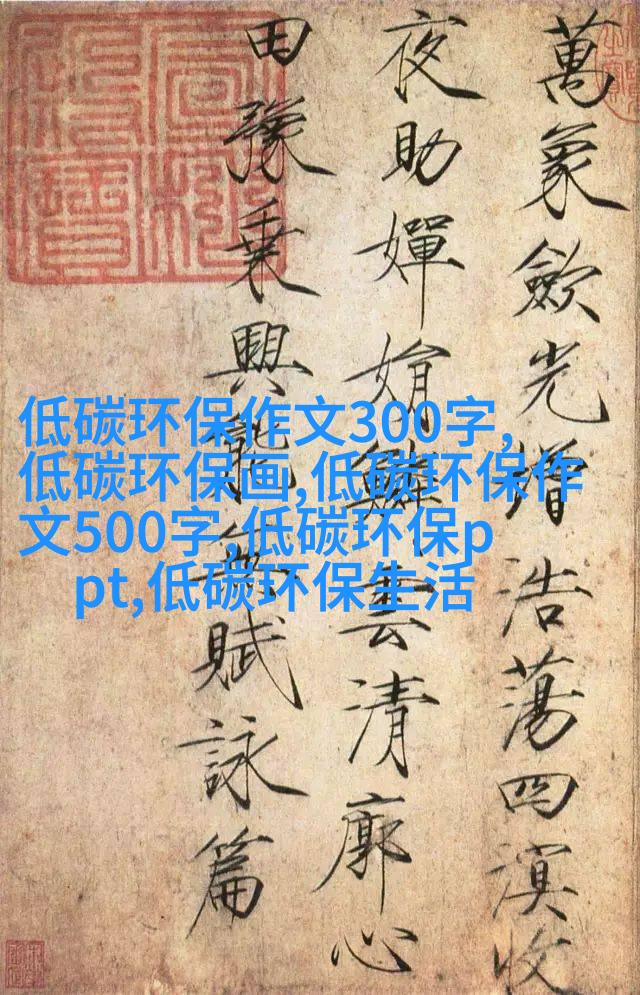 萬象歛光增浩蕩四溟收
夜助嬋娟鱗雲清廓心
田豫乗興能無賦詠篇
低碳环保作文300字,
低碳环保画,低碳环保作
文500字,低碳环保p
pt,低碳环保生活